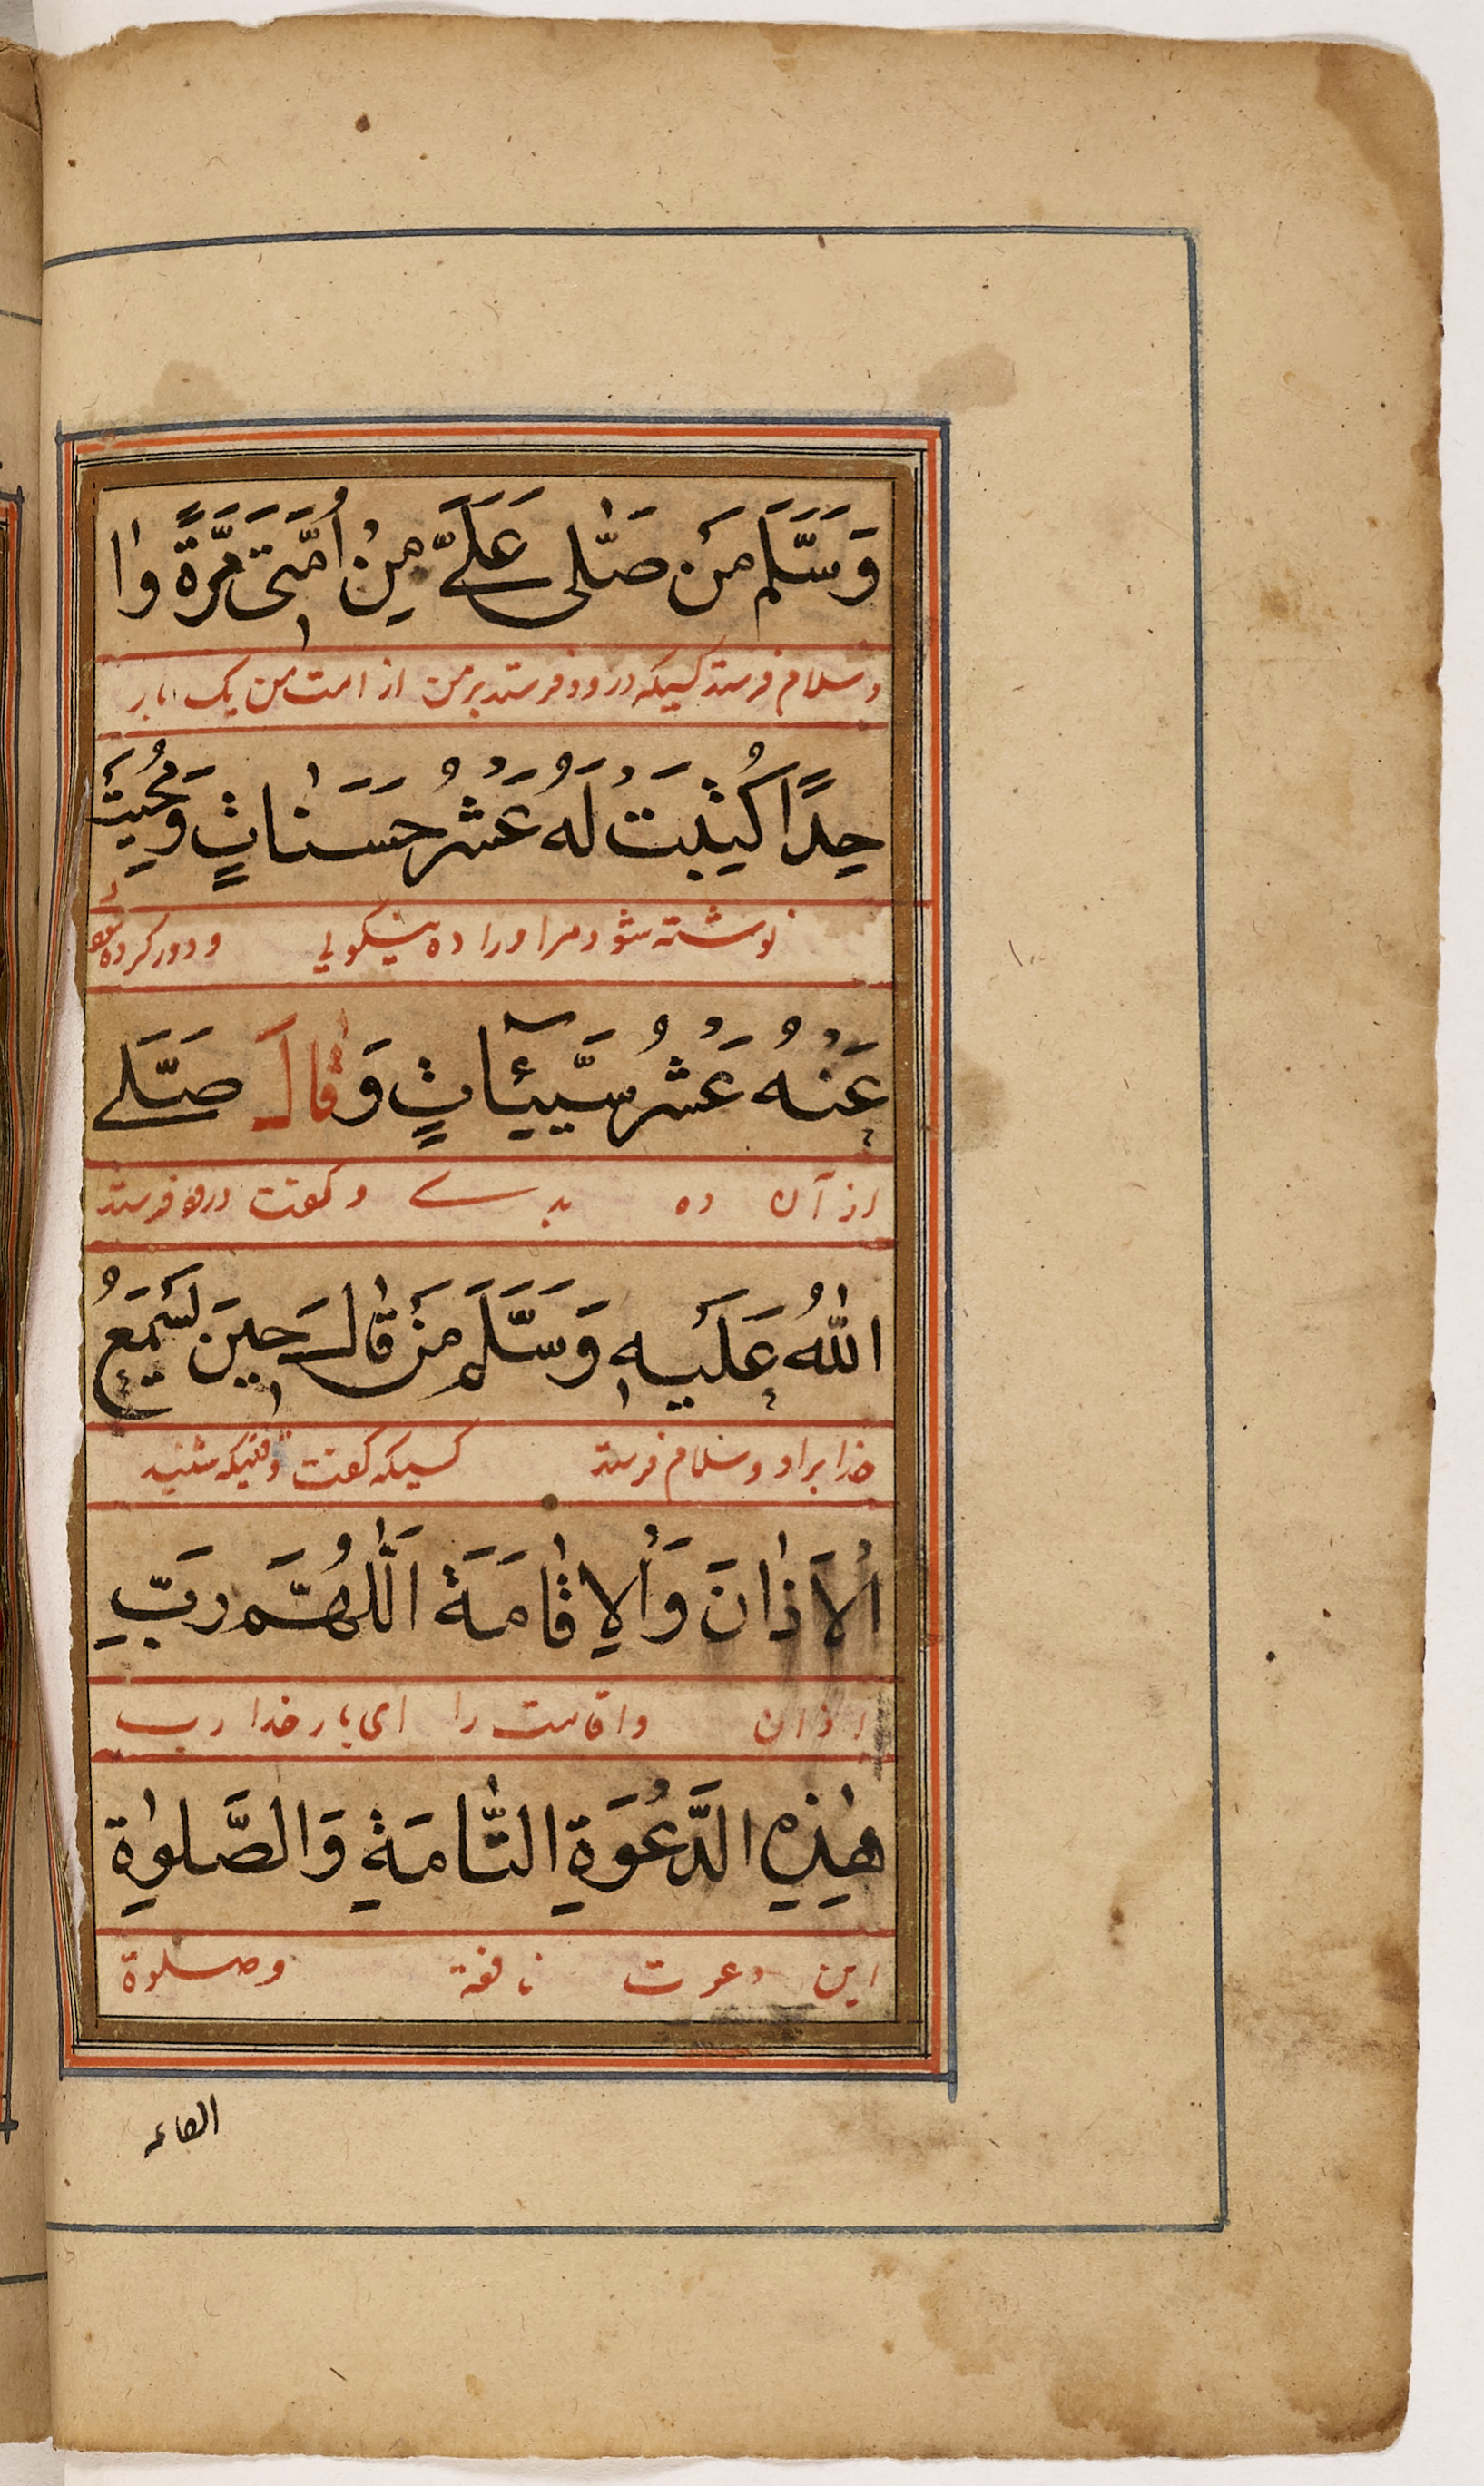 وَسَلَّمَ مَنْ صَلّٰى عَلَىَّ مِنْ اُمَّتِى مَرَّةً وٰا
وسلام فرستد كسيكه درود فرستد بر من از امت من يک بار
حِدًا كُتِبَتْ لَهُ عَشْرُ حَسَنٰاتٍ وَمُحِيَتْ
نوشته شود مر او را ده نيكوئي و دور كرده شود
عَنْهُ عَشْرُ سَيِّئٰاتٍ وَقٰالَ صَلَّى
از آن ده بدے و گفت درود فرستد
اللّٰهُ عَلَيْهِ وَسَلَّمَ مَنْ قٰالَ حِينَ يَسْمَعُ
خدا بر او و سلام فرستد كسيكه گفت وقتيكه شنيد
الْاَذٰانَ وَالْاِقٰامَةَ اَللّٰهُمَّ رَبِّ
اذان واقامت را اى بار خدا رب
هٰذِهِ الدَّعْوَةِ التّٰامَةِ وَالصَّلوٰةِ
اين دعوت نافعة وصلوة
القائمه